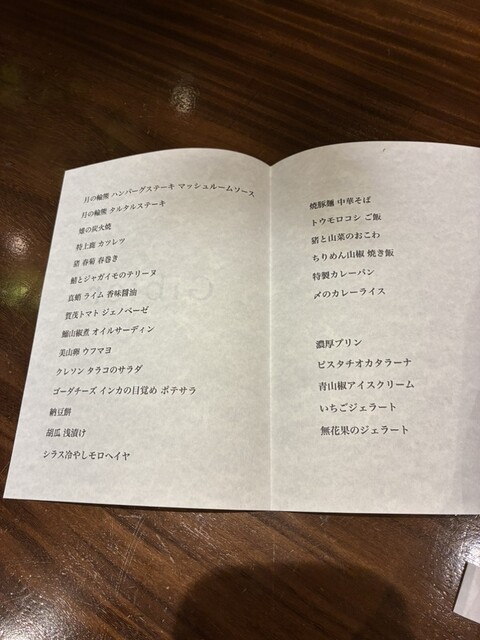 月の輪熊 ハンバーグステーキ マッシュルームソース
月の輪熊 タルタルステーキ
雉の炭火焼
特上鹿 カツレツ
猪 春菊 春巻き
鮹とジャガイモのテリーヌ
真鮹 ライム 香味醤油
賀茂トマト ジェノベーゼ
鰯山椒煮 オイルサーディン
美山卵 ウフマヨ
クレソン タラコのサラダ
ゴーダチーズ インカの目覚め ポテサラ
納豆餅
胡瓜 浅漬け
シラス冷やしモロヘイヤ
焼豚麺 中華そば
トウモロコシ ご飯
猪と山菜のおこわ
ちりめん山椒 焼き飯
特製カレーパン
〆のカレーライス
濃厚プリン
ピスタチオカタラーナ
青山椒アイスクリーム
いちごジェラート
無花果のジェラート